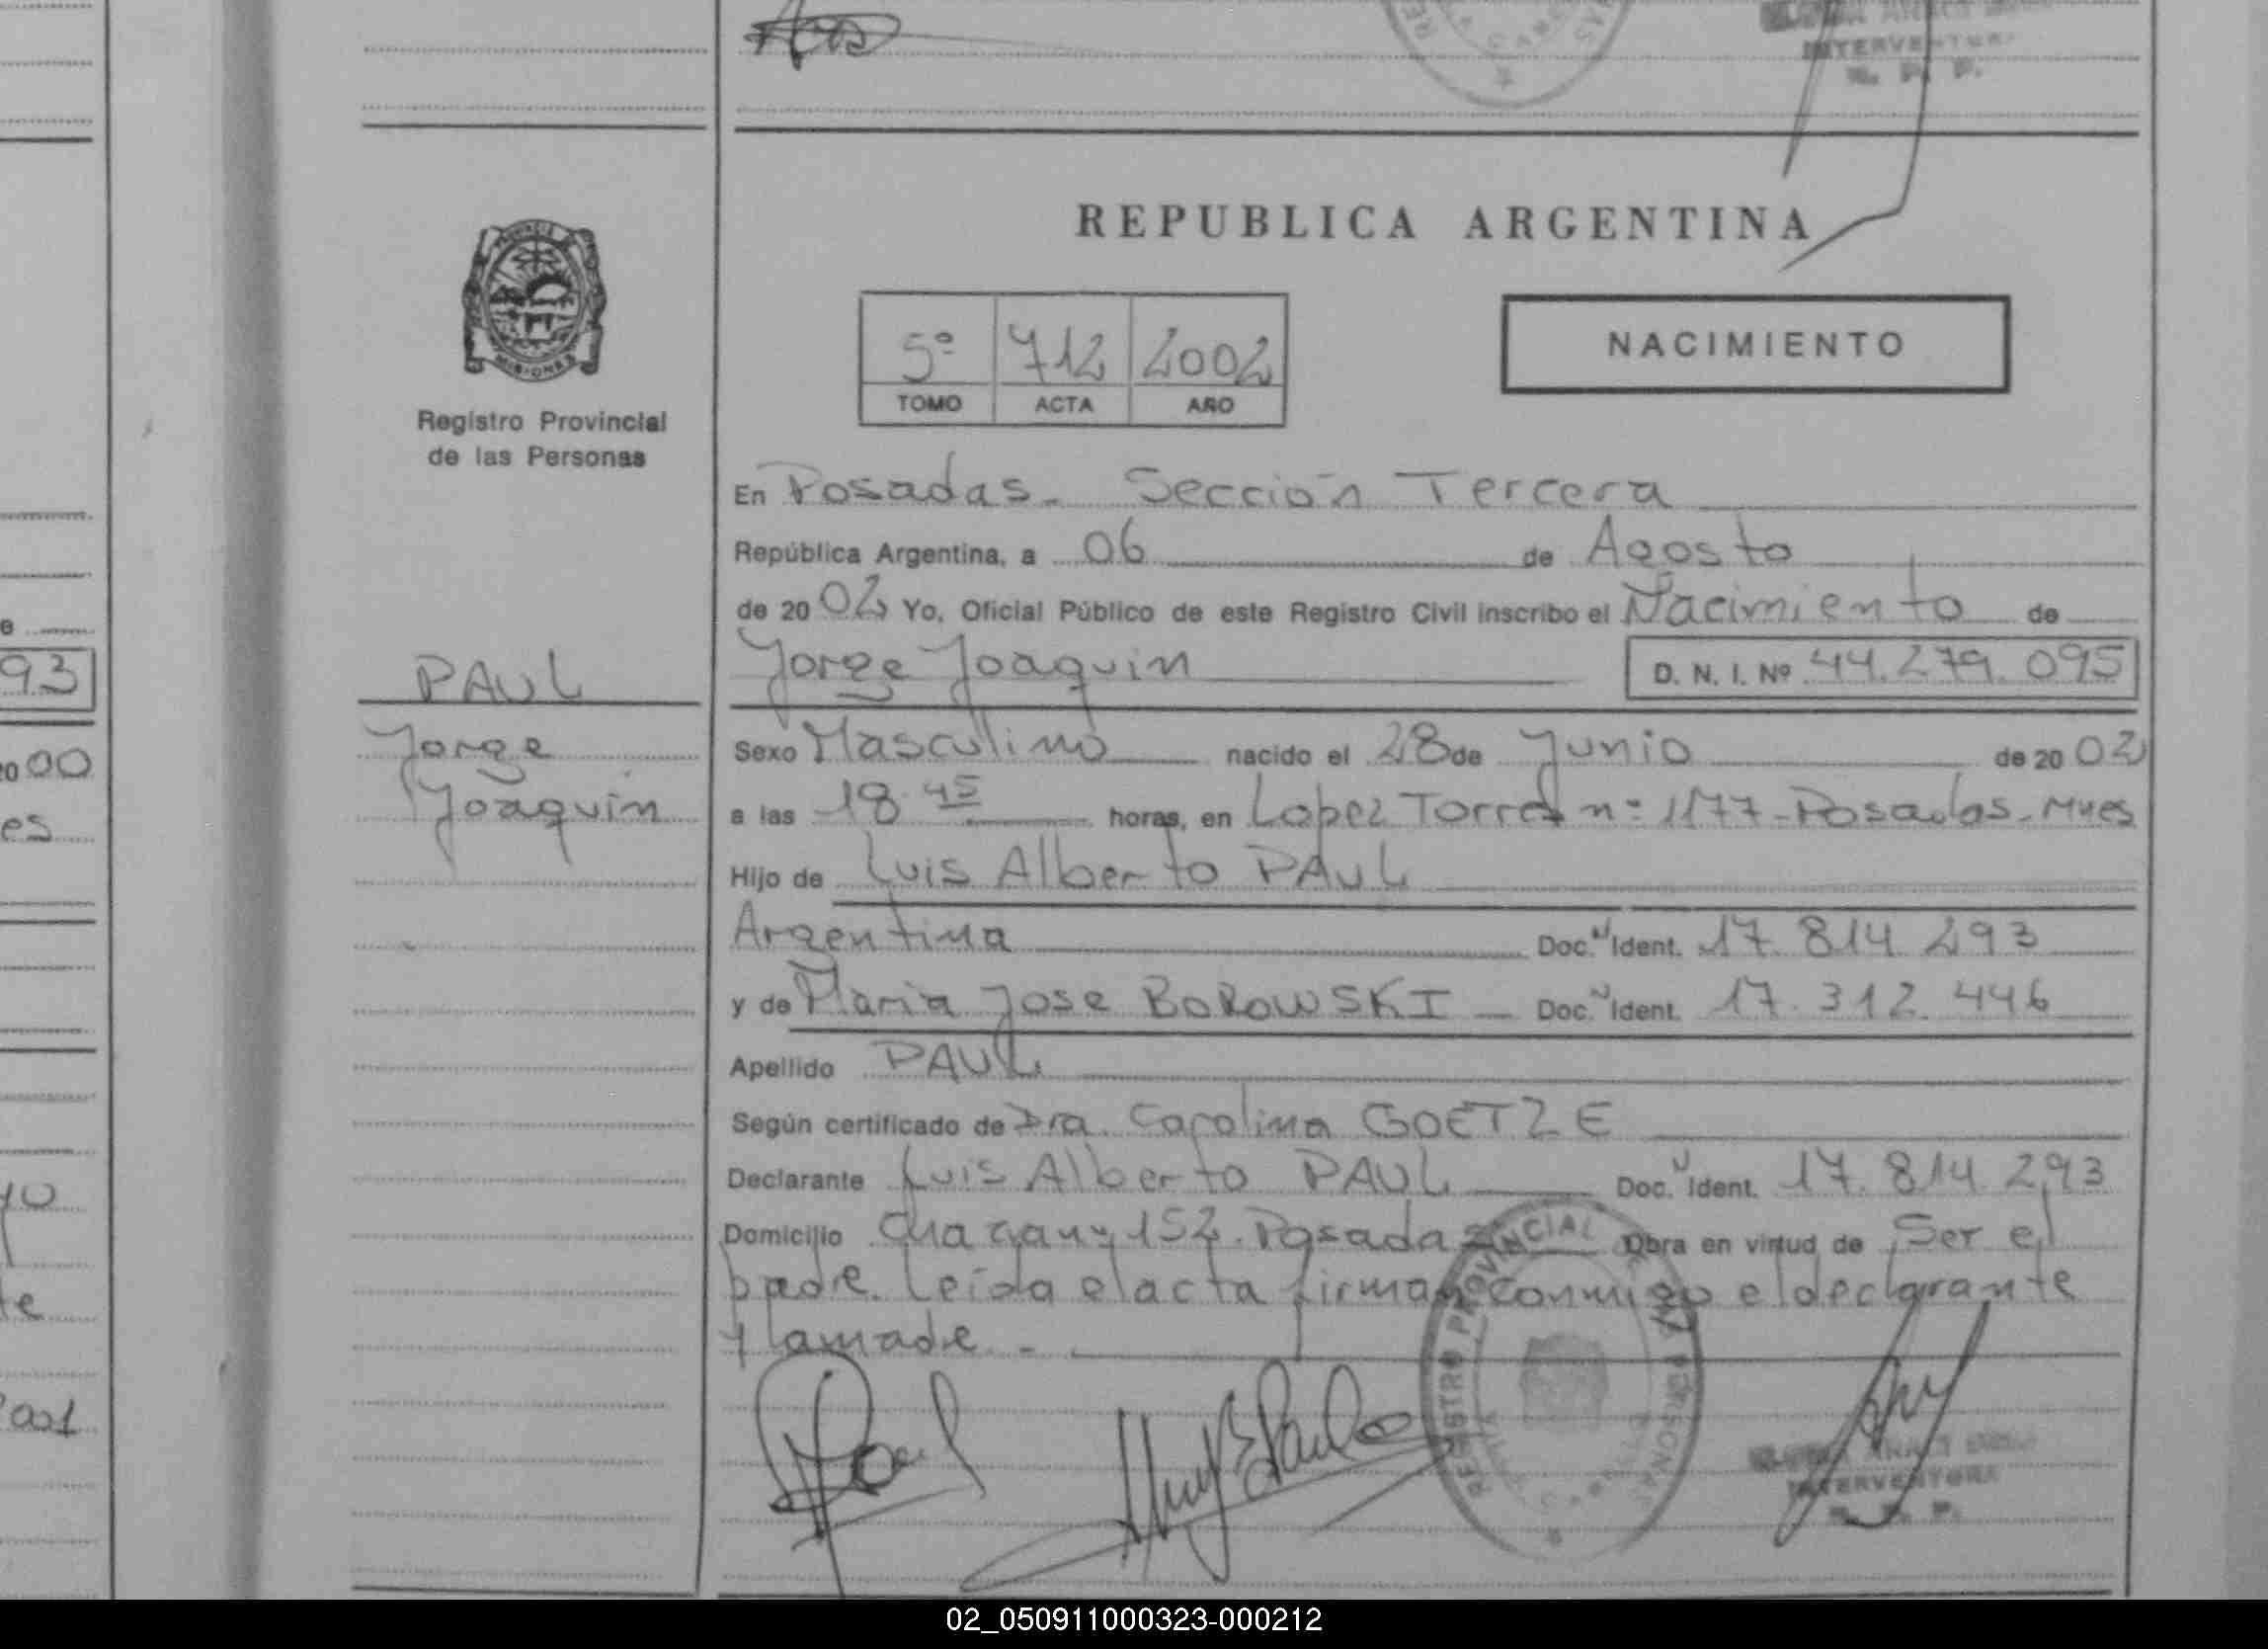 INTERVENTORA
R. P. P.
REPUBLICA ARGENTINA
5º 712 2002
TOMO ACTA AÑO
NACIMIENTO
PROVINCIA
MISIONES
Registro Provincial
de las Personas
En Posadas - Sección Tercera
República Argentina, a 06 de Agosto
de 2002 Yo, Oficial Público de este Registro Civil inscribo el Nacimiento de
Jorge Joaquin D. N. I. Nº 44.279.095
PAUL
Jorge
Joaquin
Sexo Masculino nacido el 28 de Junio de 2002
a las 18:45 horas, en Lopez Torres nº 1177 - Posadas - Mnes
Hijo de Luis Alberto PAUL
Argentina Doc. Ident. 17.814.293
y de Maria Jose BOROWSKI Doc. Ident. 17.312.446
Apellido PAUL
Según certificado de Dra. Carolina GOETZE
Declarante Luis Alberto PAUL Doc. Ident. 17.814.293
Domicilio 152. Posadas Obra en virtud de Ser el
padre. Leída el acta firman conmigo el declarante
y la madre. -
REGISTRO PROVINCIAL DE LAS PERSONAS
INTERVENTORA
R. P. P.
93
2000
es
yo
te
2001
02_050911000323-000212